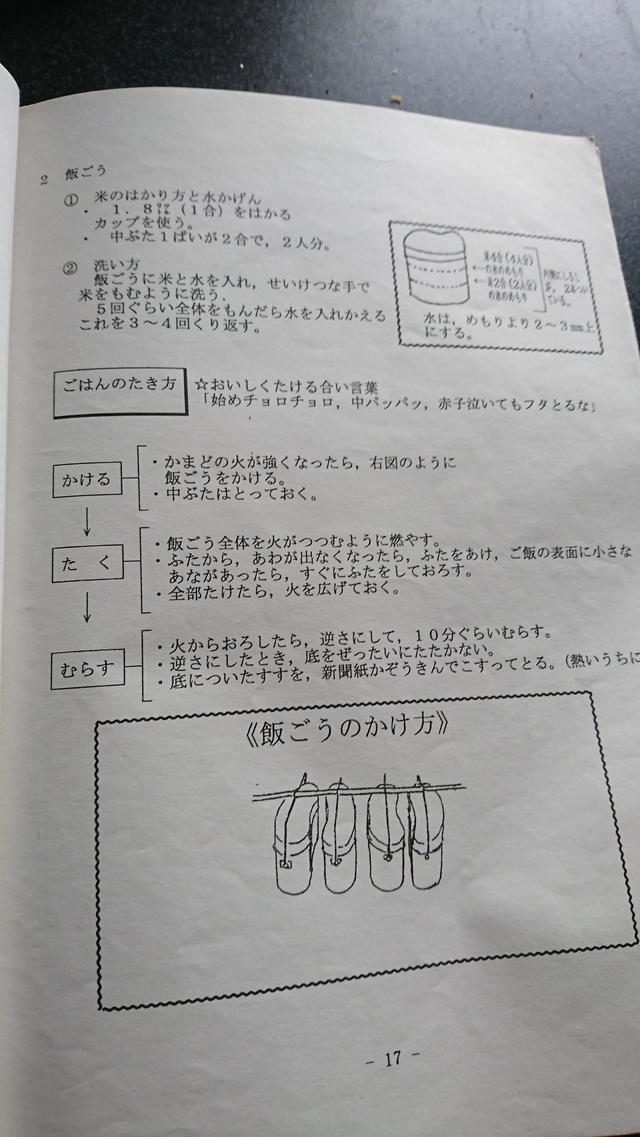 2 飯ごう
① 米のはかり方と水かげん
・ 1.8㍑(1合)をはかる
カップを使う。
・ 中ぶた1ぱいが2合で,2人分。
② 洗い方
飯ごうに米と水を入れ,せいけつな手で
米をもむように洗う.
5回ぐらい全体をもんだら水を入れかえる
これを3~4回くり返す。
米4合(4人分)
の水のめもり
米2合(2人分)
の水のめもり
内側にしるし
が,2本つい
ている。
水は,めもりより2~3㎜上
にする。
ごはんのたき方
☆おいしくたける合い言葉
「始めチョロチョロ,中パッパッ,赤子泣いてもフタとるな」
かける
・かまどの火が強くなったら,右図のように
飯ごうをかける。
・中ぶたはとっておく。
たく
・飯ごう全体を火がつつむように燃やす。
・ふたから,あわが出なくなったら,ふたをあけ,ご飯の表面に小さな
あながあったら,すぐにふたをしておろす。
・全部たけたら,火を広げておく。
むらす
・火からおろしたら,逆さにして,10分ぐらいむらす。
・逆さにしたとき,底をぜったいにたたかない。
・底についたすすを,新聞紙かぞうきんでこすってとる。(熱いうちに
《飯ごうのかけ方》
- 17 -